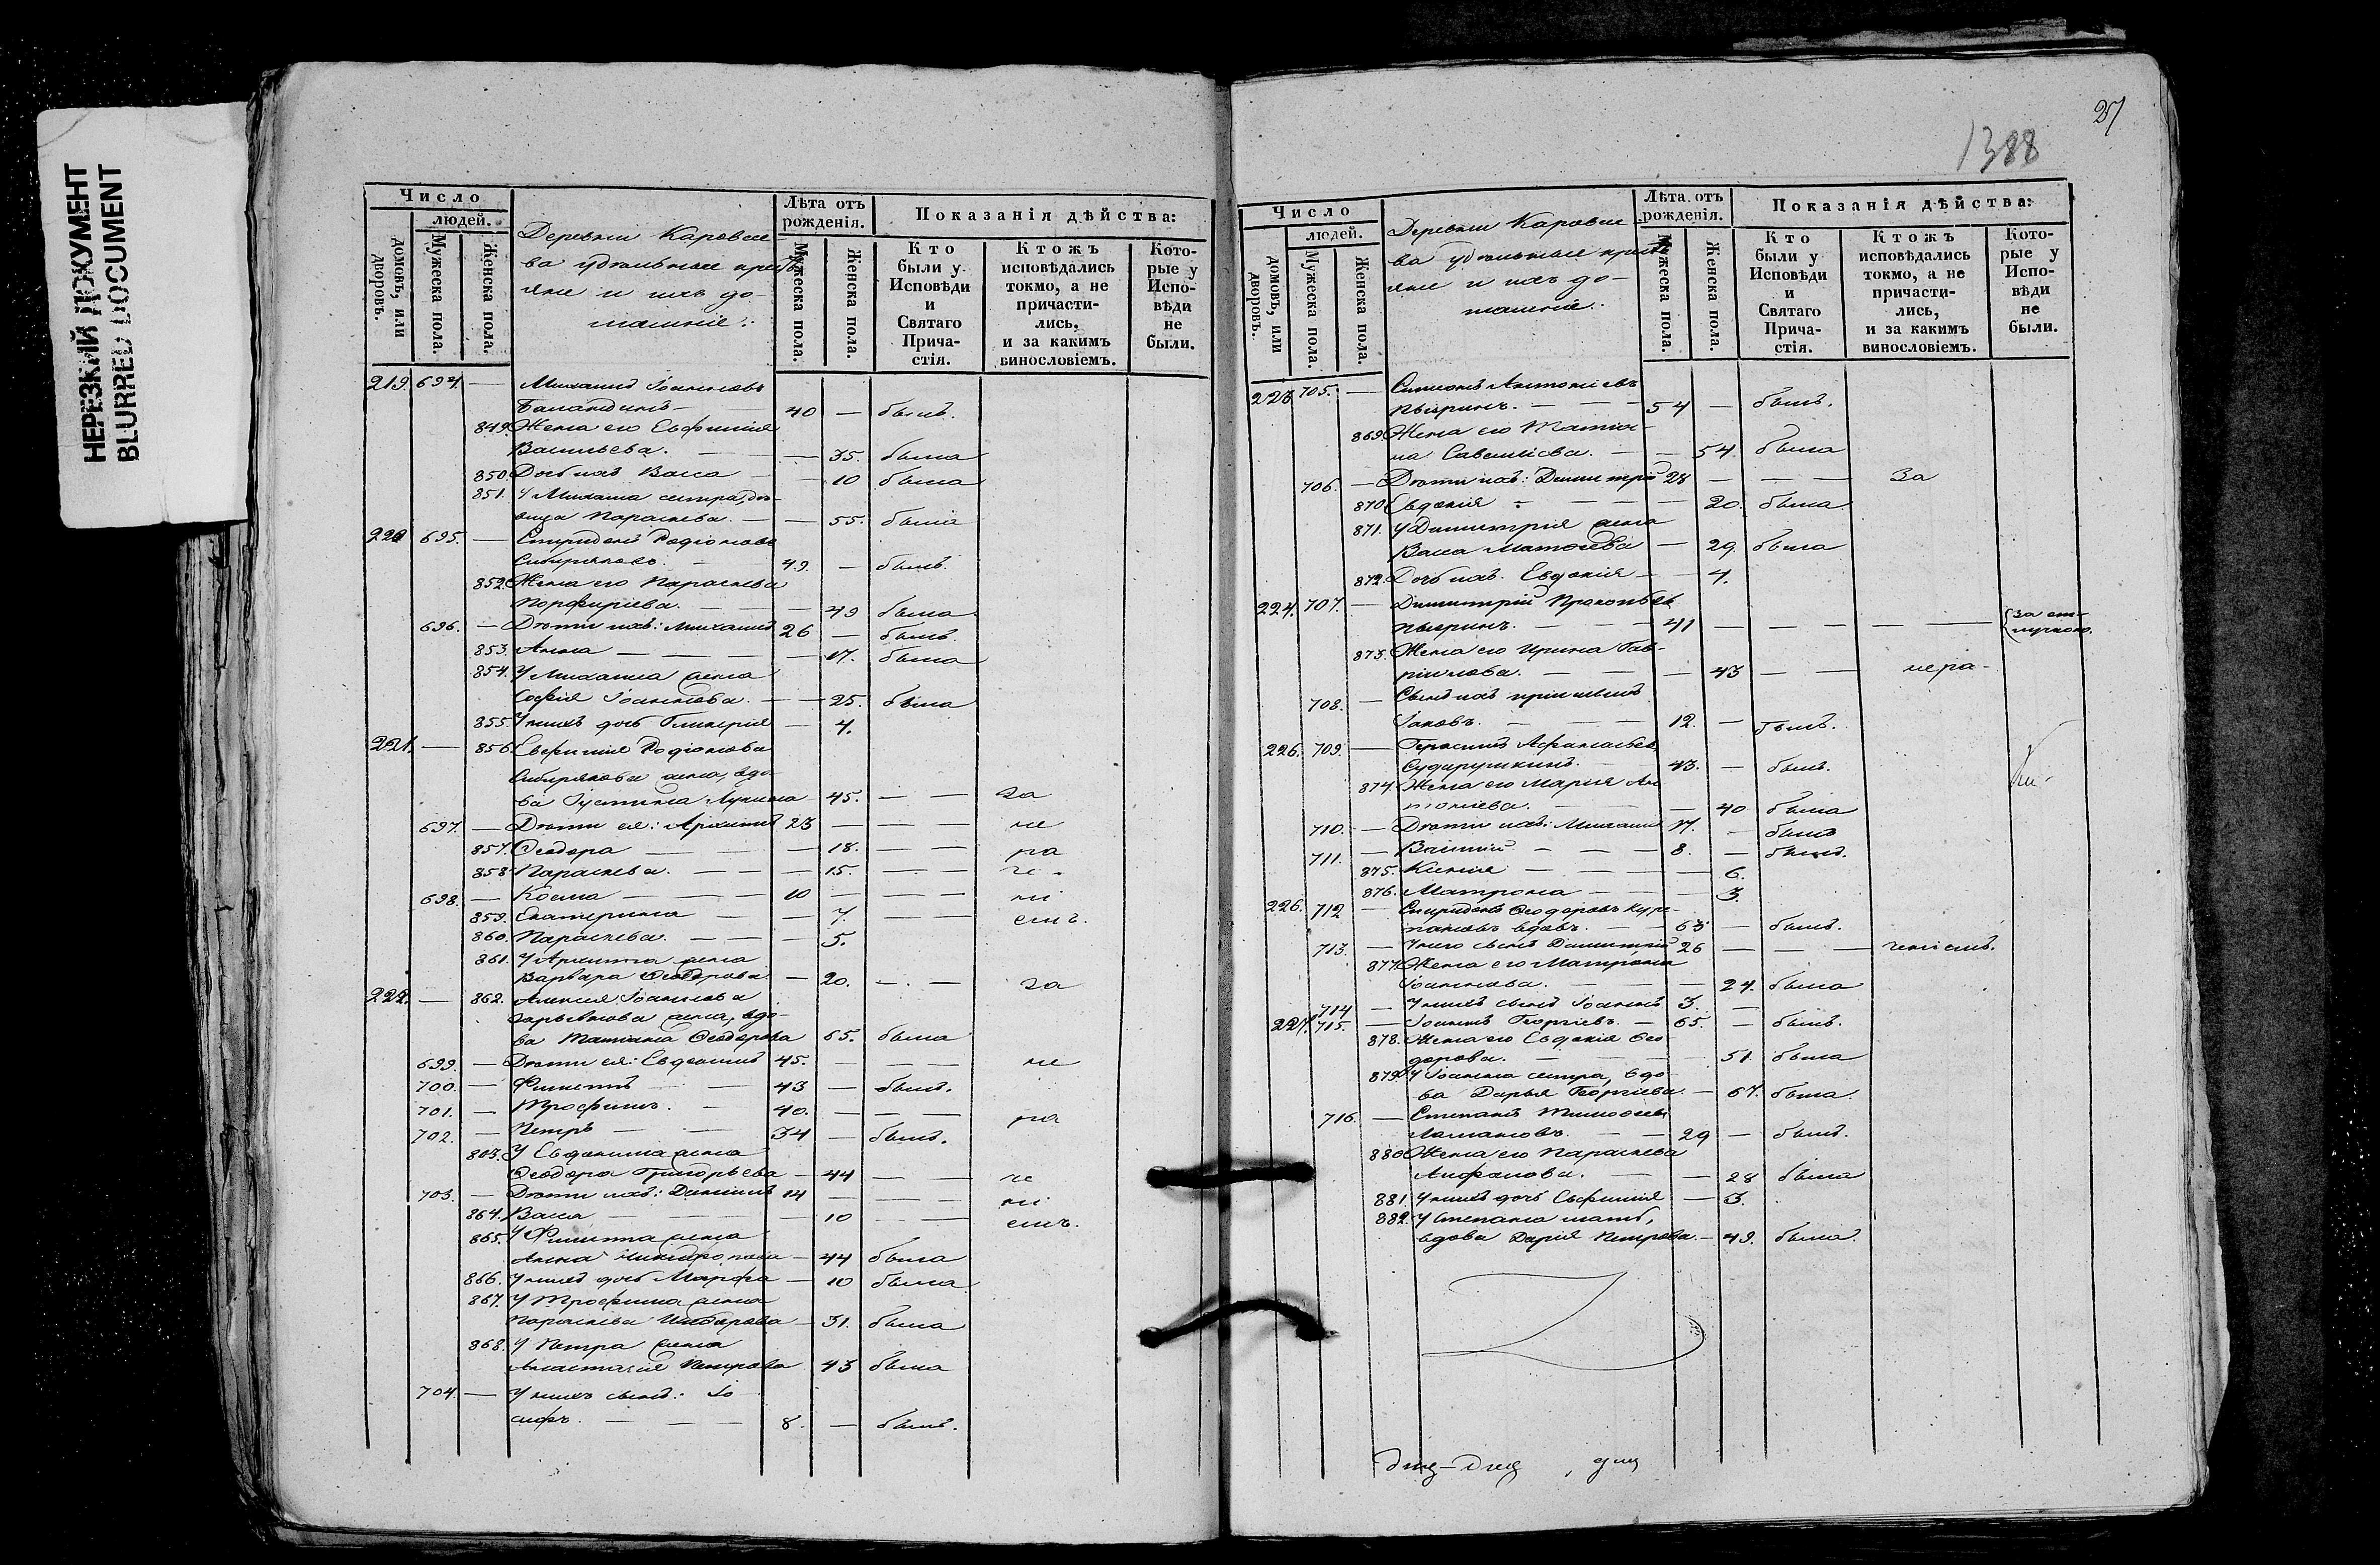 НЕРЕЗКИЙ ДОКУМЕНТ
BLURRED DOCUMENT
Число
людей.
домовъ, или дворовъ.
Мужеска пола.
Женска пола.
Деревни Каровае-
ва удѣльные кресть-
яне и ихъ до-
машніе:
Лѣта отъ рожденія.
Мужеска пола.
Женска пола.
Показанія дѣйства:
Кто были у Исповѣди и Святаго Прича-стія.
Ктожъ исповѣдались токмо, а не причасти-лись, и за какимъ винословіемъ.
Кото-рые у Испо-вѣди не были.
219. 694. — Михаилъ Іоанновъ
Баландинъ — 40 — былъ.
849. Жена его Евфимія
Васильева. — — 35. была
850. Дочь ихъ Васса — — 10 была
851. У Михаила сестра, дѣ-
вица Параскева. — — 55. была
220 695. — Спиридонъ Родіоновъ
Сибиряковъ. — 49. — былъ.
852. Жена его Параскева
Порфиріева. — — 49 была
696. — Дѣти ихъ: Михаилъ 26 — былъ.
853. Анна — — — 17. была
854. У Михаила жена
Софія Іоаннова. — — 25. была
855. У нихъ дочь Гликерія — 4.
221. — 856. Евфимія Родіонова
Сибирякова жена, вдо-
ва Іустина Лукина 45. — — за
697. — Дѣти ея: Архипъ 23 — — — не
857. Ѳеодора — — — 18. — — ра
858 Параскева. — — — 15. — — че-
698. — Косма — — 10 — — — ні
859. Екатерина — — 7. — — емъ.
860. Параскева. — — — 5.
861. У Архипа жена
Варвара Ѳеодорова. — 20. — — за
222. — 862. Алексія Іоаннова
жена, вдо-
ва Татіана Ѳеодорова 65. была
699. — Дѣти ея: Евдокимъ 45. — — — не
700. — Филиппъ — — 43 — былъ.
701. — Трофимъ. — 40. — — — ра
702. — Петръ — — 34 — былъ.
863. У Евдокима жена
Ѳеодора Григорьева — 44 — — че
703. — Дѣти ихъ: Даніилъ 14 — — — ні
864. Васса — — — 10 — — емъ.
865. У Филиппа жена
Анна — 44 была
866. У нихъ дочь Марфа — 10 была
867. У Трофима жена
Параскева — 31. была
868. У Петра жена
Анастасія Петрова 43 была
704. — У нихъ сынъ: Іо
сифъ. — — — 8. — былъ.
27
1388
Число
людей.
домовъ, или дворовъ.
Мужеска пола.
Женска пола.
Деревни Каровае
ва удѣльные кресть
яне и ихъ до-
машніе:
Лѣта отъ рожденія.
Мужеска пола.
Женска пола.
Показанія дѣйства:
Кто были у Исповѣди и Святаго Прича-стія.
Ктожъ исповѣдались токмо, а не причасти-лись, и за какимъ винословіемъ.
Кото-рые у Испо-вѣди не были.
223 705. — Симеонъ Антоніевъ
Пыринъ. — — — 54 — былъ.
869 Жена его Татіа-
на Савельева. — — 54. была
706. — Дѣти ихъ: Димитрій 28 — — — за
870 Евдокія — — — 20. была
871. У Димитрія жена
Васса — 29. была
872. Дочь ихъ. Евдокія — — 4.
224. 707. — Димитрій Прокопьев
Пыринъ. — — — 41 — — — — за от-
лучкою.
873. Жена его Ирина Гав-
ріилова. — — — 43 — — нера-
708. — Сынъ ихъ
Іаковъ. — — — 12. — былъ.
226. 709. — Герасимъ Аѳанасьев
Сударушкинъ. — 43. — былъ.
874. Жена его Марія Ан
тоніева. — — — 40 была
710. — Дѣти ихъ: Михаилъ 17. — былъ
711. — Василій — — — 8. — былъ.
875. Ксенія — — — — 6.
876. Матрона — — — 3.
226. 712 — Спиридонъ Ѳеодоровъ
вдовъ. — — 63 — былъ.
713. — У него сынъ Димитрій 26 — — — ченіемъ.
877. Жена его Матрона
Іоаннова. — — — 24. была
714 — У нихъ сынъ Іоаннъ 3. —
227. 715. — Іоаннъ Георгіевъ. — 65. — былъ.
878. Жена его Евдокія Ѳео
дорова. — — — 51. была
879. У Іоанна сестра, вдо
ва Дарья Георгіева. — 67. была.
716. — Степанъ
— — 29 — былъ.
880 Жена его Параскева
— — 28 была
881. У нихъ дочь Евфимія — 3.
882. У Степана мать,
вдова Дарія Петрова. — 49. была.